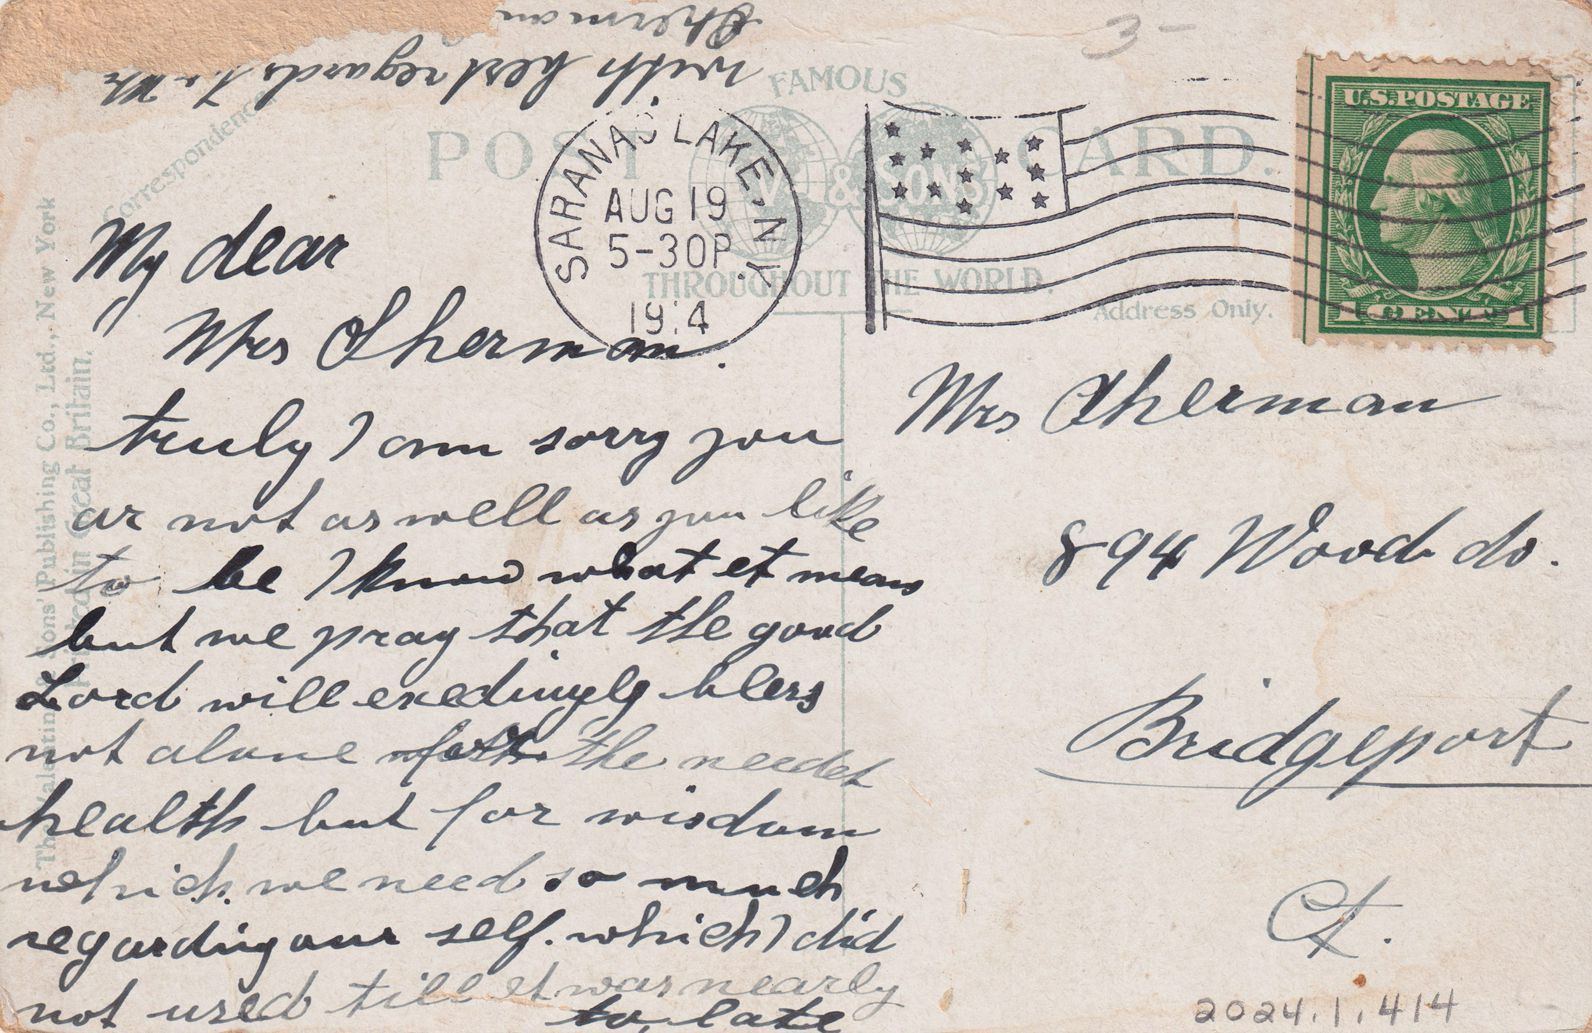 3-
with best regards to Mr
Sherman
Correspondence
FAMOUS
POST CARD.
V. & SONS
THROUGHOUT THE WORLD.
Address Only.
SARANAC LAKE, N.Y.
AUG 19
5-30P
1914
U.S. POSTAGE
1 CENT 1
The Valentine & Sons' Publishing Co., Ltd., New York
Printed in Great Britain.
My dear
Mrs Sherman.
truly I am sorry you
ar not as well as you like
to be I know what et means
but we pray that the good
Lord will exedingly bless
not alone for the needet
health but for wisdom
which we need so much
regarding our self. which I did
not used till et was nearly
to late
Mrs Sherman
894 Wood do.
Bridgeport
Ct.
2024.1.414